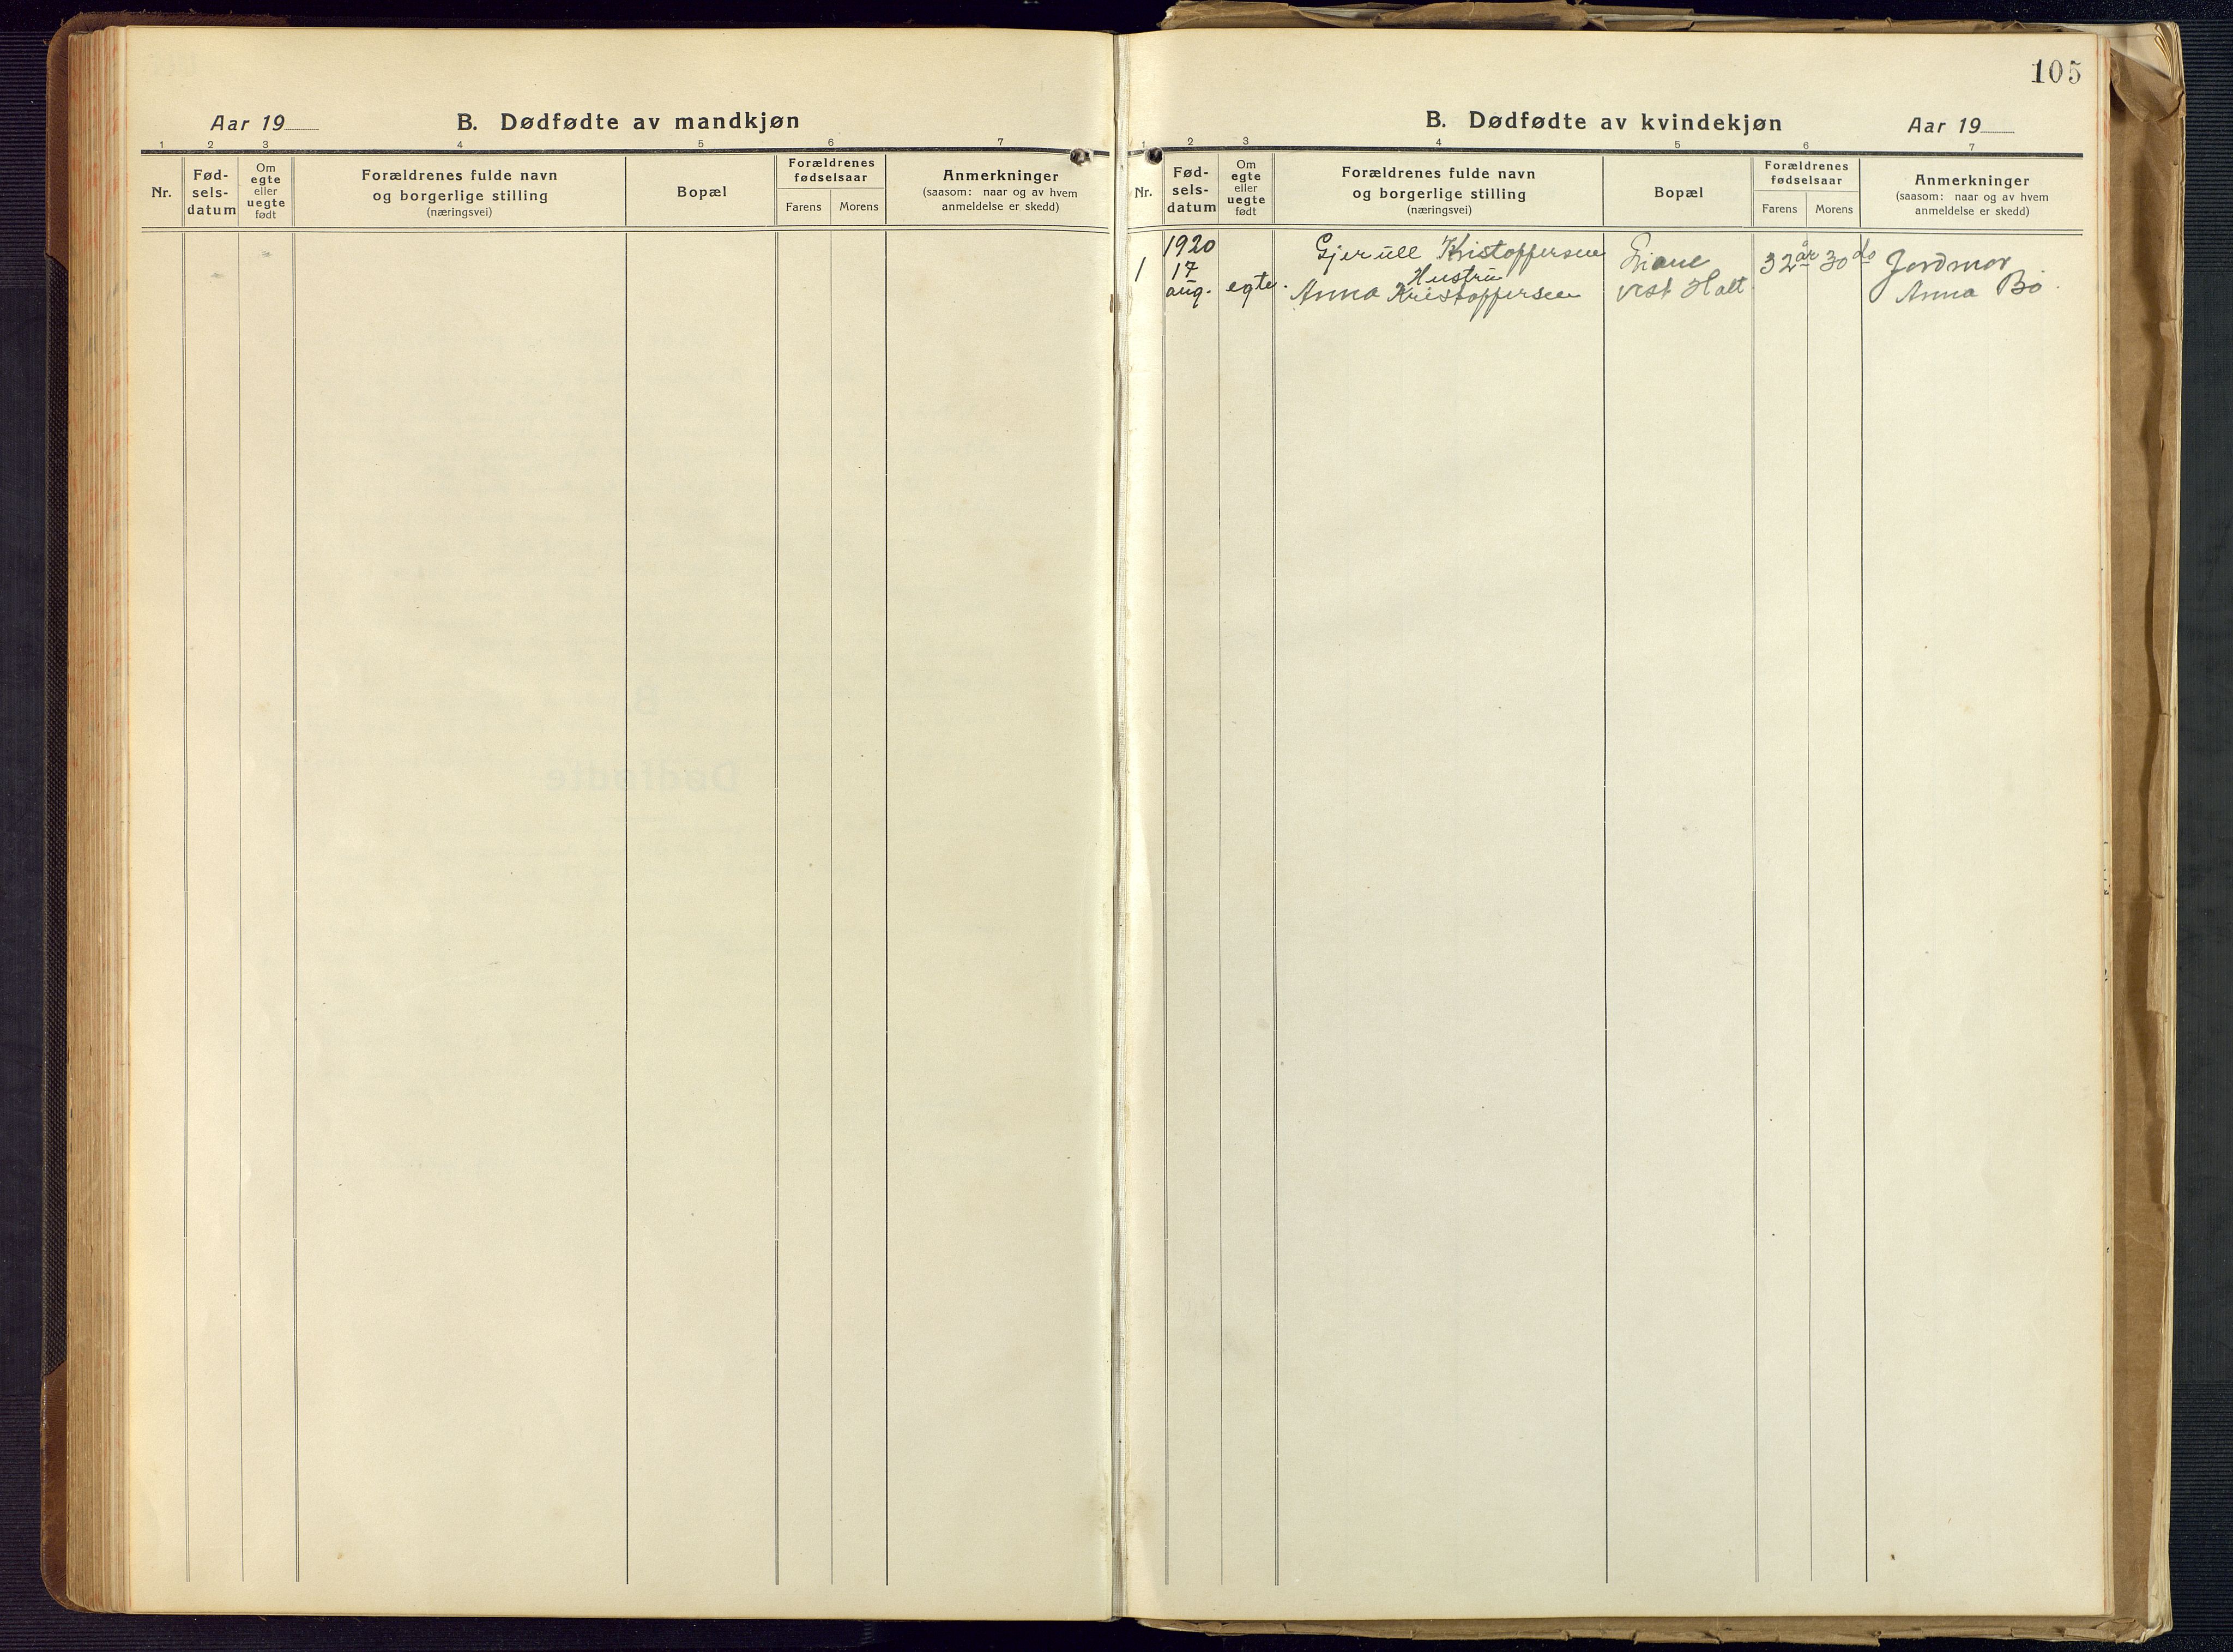 Aar 19
B. Dødfødte av mandkjøn
1 2 3 4 5 6 7
Nr.
Fød-
sels-
datum
Om
egte
eller
uegte
født
Forældrenes fulde navn
og borgerlige stilling
(næringsvei)
Bopæl
Forældrenes
fødselsaar
Farens Morens
Anmerkninger
(saasom: naar og av hvem
anmeldelse er skedd)
105
B. Dødfødte av kvindekjøn
Aar 19
1 2 3 4 5 6 7
Nr.
Fød-
sels-
datum
Om
egte
eller
uegte
født
Forældrenes fulde navn
og borgerlige stilling
(næringsvei)
Bopæl
Forældrenes
fødselsaar
Farens Morens
Anmerkninger
(saasom: naar og av hvem
anmeldelse er skedd)
1
1920
17
aug.
egte.
Gjerüll Kristoffersen
Hustrü
Anna Kristoffersen
vest Holt
32 år
30 do
Jordmor
Anna Bö.